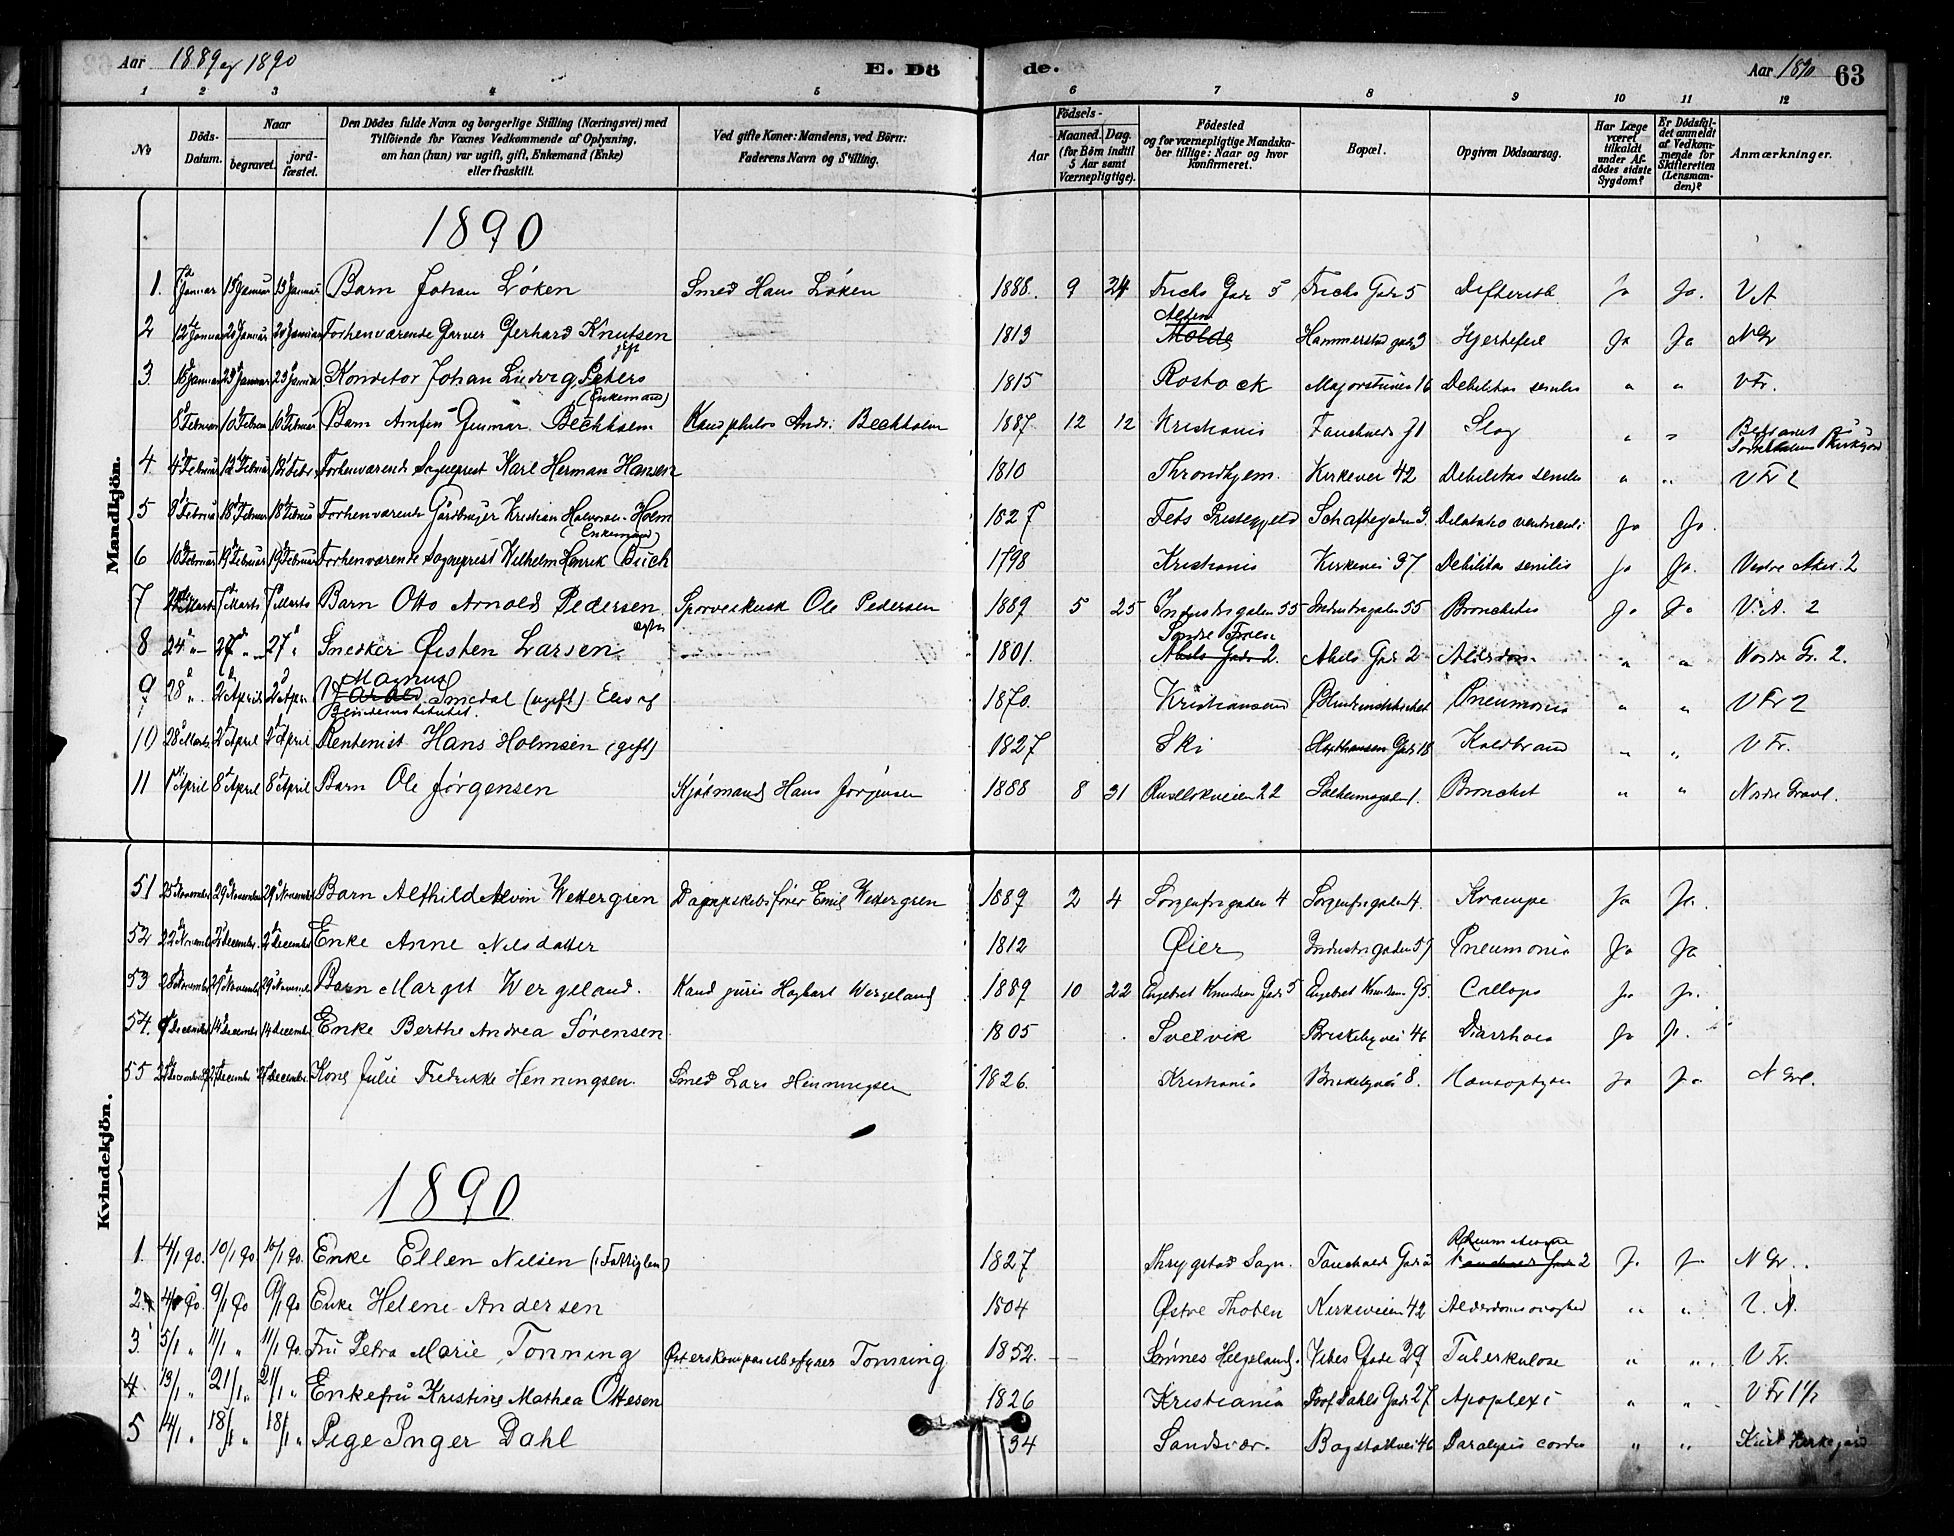 Aar 1889 og 1890 E. Dö de. Aar 1890 63
1 2 3 4 5 6 7 8 9 10 11 12
No. Döds-Datum. Naar begravet. jordfæstet. Den Dödes fulde Navn og borgerlige Stilling (Næringsvei) med Tilföiende for Voxnes Vedkommende af Oplysning, om han (hun) var ugift, gift, Enkemand (Enke) eller fraskilt. Ved gifte Koner: Mandens, ved Börn: Faderens Navn og Stilling. Födsels- Aar Maaned. Dag. (for Börn indtil 5 Aar samt Værnepligtige). Födested og for værnepligtige Mandskaber tillige: Naar og hvor konfirmeret. Bopæl. Opgiven Dödsaarsag. Har Læge været tilkaldt under Afdödes sidste Sygdom? Er Dödsfaldet anmeldt af Vedkommende for Skifteretten (Lensmanden)? Anmærkninger.
Mandkjön.
1890
1. 7d Januar 13 Januar 13 Januar Barn Johan Löken Smed Hans Löken 1888. 9 24 Frichs Gade 5 Frichs Gade 5 Defterith Ja Ja. V A
2 12 Januar 20 Januar 20 Januar Forhenværende Garver Gerhard Knutsen gift 1813 Molde Hammerstad gade 3 Hjertefeil Ja Ja N Gr
3 18 Januar 23 Januar 23 Januar Konditor Johan Ludvig Peters (Enkemand) 1815 Rostock Majorstuvei 16 Debilitas senilis " " V Fr.
8 Februar 10 Februar 10 Februar Barn Arnfin Gunnar Bechholm Kand philos Andr. Bechholm 1887 12 12 Kristiania Fauchalds g 1 Slag " "
4 4 Februar 12 Februar Forhenværende Sogneprest Karl Herman Hansen 1810 Throndhjem. Kirkevei 42 Debilitas senilis " " V Fr 2
5 9 Februar 18 Februar 18 Februar Forhenværende Gaardbruger Kristian Halvorsen Holm (Enkemand) 1827 Fets Prestegjeld Schaftegaden 3. Dilatatio ventriculi Ja Ja.
6 10 Februar 19 Februar 19 Februar Forhenværende Sogneprest Wilhelm Henrik Buch 1798 Kristiania Kirkevei 37. Debilitas senilis Ja Ja. Vestre Aker. 2
7 Marts 7 Marts 7 Marts Barn Otto Arnold Pedersen Sporveiskusk Ole Pedersen 1889 5 25 Industrigaden 55 Industrigaden 55 Bronchitis Ja Ja V. A. 2
8 24 " 27 " 27 " Snedker Östen Larsen 1801. Søndre Froen Abels Gade 2. Abels Gade 2 Alderdom " " Nordre Gr. 2.
9 28 " 2 April 2 April Magnus Smedal (ugift) Elev af Blindeinstitutet. 1870. Kristiansund Blindeinstitutet Pneumonia " " V Fr 2
10 28 Marts 2 April 2 April Rentenist Hans Holmsen (gift) 1827 Ski Holtbrand " " V Fr.
11 1 April 8 April 8 April Barn Ole Jørgensen Kjöbmand Hans Jørgensen 1888 8 31 Ruselökveien 22 Bronchit " " Nordre Gravl.
Kvindekjön.
51 25 November 29 November 29 November Barn Alfhild Alvin Wettergren Dampskibsfører Emil Wettergren 1889 2 4 Sorgenfrigaden 4 Sorgenfrigaden 4. Krampe Ja Ja.
52 22 November 2 December 2 December Enke Anne Nilsdatter 1812 Öier Industrigaden 57 Pneumonia Ja Ja
53 28 November 29 November 29 November Barn Margit Wergeland. Kand juris Hagbart Wergeland 1889 10 22 Engebret Knudsens Gade 5 Collaps Ja Ja.
54. December 14 December 14 December Enke Berthe Andrea Sörensen 1805 Svelvik Briskebyvei 46 Diarrhoea Ja Ja.
55 December 27 December 27 December Kone Julie Fredrikke Henningsen Smed Lars Henningsen 1826. Kristiania Briskebyvei 8. Hæmoptyse Ja Ja N Grl.
1890
1. 4/1 90. 10/1 90 10/1 90. Enke Ellen Nilsen (Fattiglem) 1827 Thrygstad Sogn. Fauchalds Gade 2 Rheumatisme Ja Ja N Gr.
2. 4/1 90. 9/1 90 9/1 90 Enke Helene Andersen 1804 Østre Thoten Kirkeveien 42 Alderdomssvaghed " " V. A.
3. 5/1 " 11/1 " 11/1 90. Fru Petra Marie Tonning Østerskompanibestyrer Tonning 1852. Sömnes Helgeland. Vibes Gade 29 Tuberkulose " " V Fr.
4 13/1 " 21/1 " 21/1 " Enkefru Kristine Mathea Ottesen 1826 Kristiania Prof Dahls Gade 27 Apoplexi " " V Fr 1 1/2
5 14/1 " 18/1 " 18/1 " Pige Inger Dahl 34 Sandsvær. Bogstadvei 46 Paralysis cordis " " Krist Kirkegaard